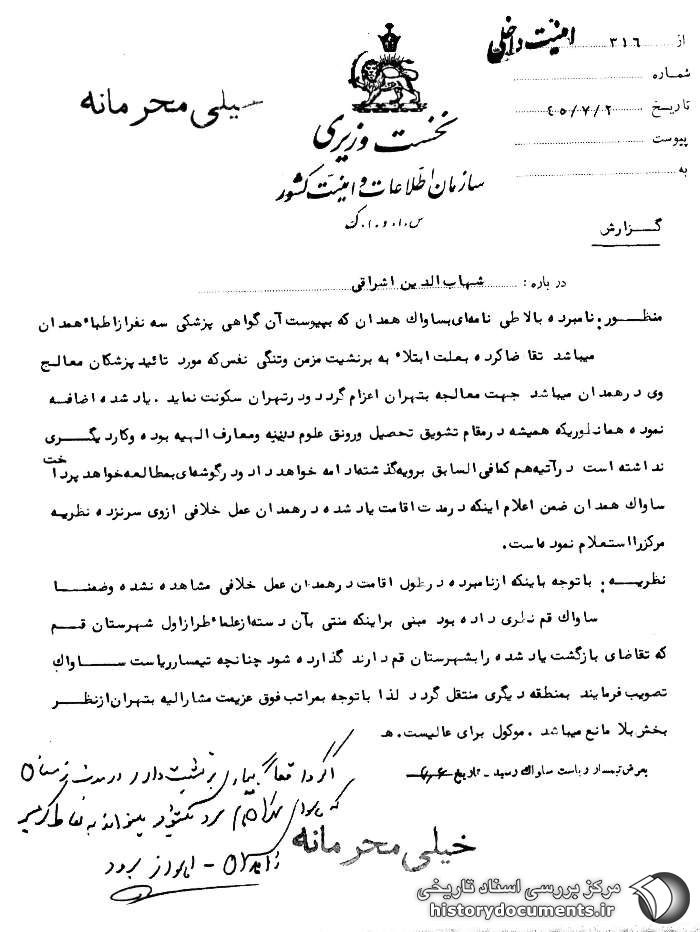 از ۳۱۶ امنیت داخلی
شماره
تاریخ ۴۵/۷/۲
پیوست
به
خیلی محرمانه
نخست وزیری
سازمان اطلاعات و امنیت کشور
س.ا.و.ا.ک
گزارش
درباره : شهاب الدین اشراقی
منظور : نامبرده بالا طی نامه‌ای بساواک همدان که بپیوست آن گواهی پزشکی سه نفر از اطباء همدان
میباشد تقاضا کرده بعلت ابتلاء به برنشیت مزمن وتنگی نفس که مورد تائید پزشکان معالج
وی در همدان میباشد جهت معالجه بتهران اعزام گردد ودرتهران سکونت نماید . یاد شده اضافه
نموده همانطوریکه همیشه درمقام تشویق تحصیل ورونق علوم دینیه ومعارف الهیه بوده وکار دیگری
نداشته است درآتیه هم کمافی السابق برویه گذشته ادامه خواهد داد ودرگوشه‌ای بمطالعه خواهد پرداخت
ساواک همدان ضمن اعلام اینکه درمدت اقامت یاد شده درهمدان عمل خلافی ازوی سرنزده نظریه
مرکز را استعلام نموده است.
نظریه : با توجه باینکه ازنامبرده درطول اقامت درهمدان عمل خلافی مشاهده نشده وضمنا
ساواک قم نظری داده بود مبنی براینکه منتی بآن دسته ازعلماء طراز اول شهرستان قم
که تقاضای بازگشت یاد شده را بشهرستان قم دارند گذارده شود چنانچه تیمسار ریاست ساواک
تصویب فرمایند بمنطقه دیگری منتقل گردد لذا با توجه بمراتب فوق عزیمت مشارالیه بتهران ازنظر
بخش بلا مانع میباشد . موکول برای عالیست. هـ
بعرض تیمسار ریاست ساواک رسید - تاریخ
اگر واقعاً بیماری برنشیت دارد و در مدت زمستان
که هوای همدان سرد میشود میتواند به نقاط گرمسیر
زاهدان - اهواز برود
خیلی محرمانه
مرکز بررسی اسناد تاریخی
historydocuments.ir